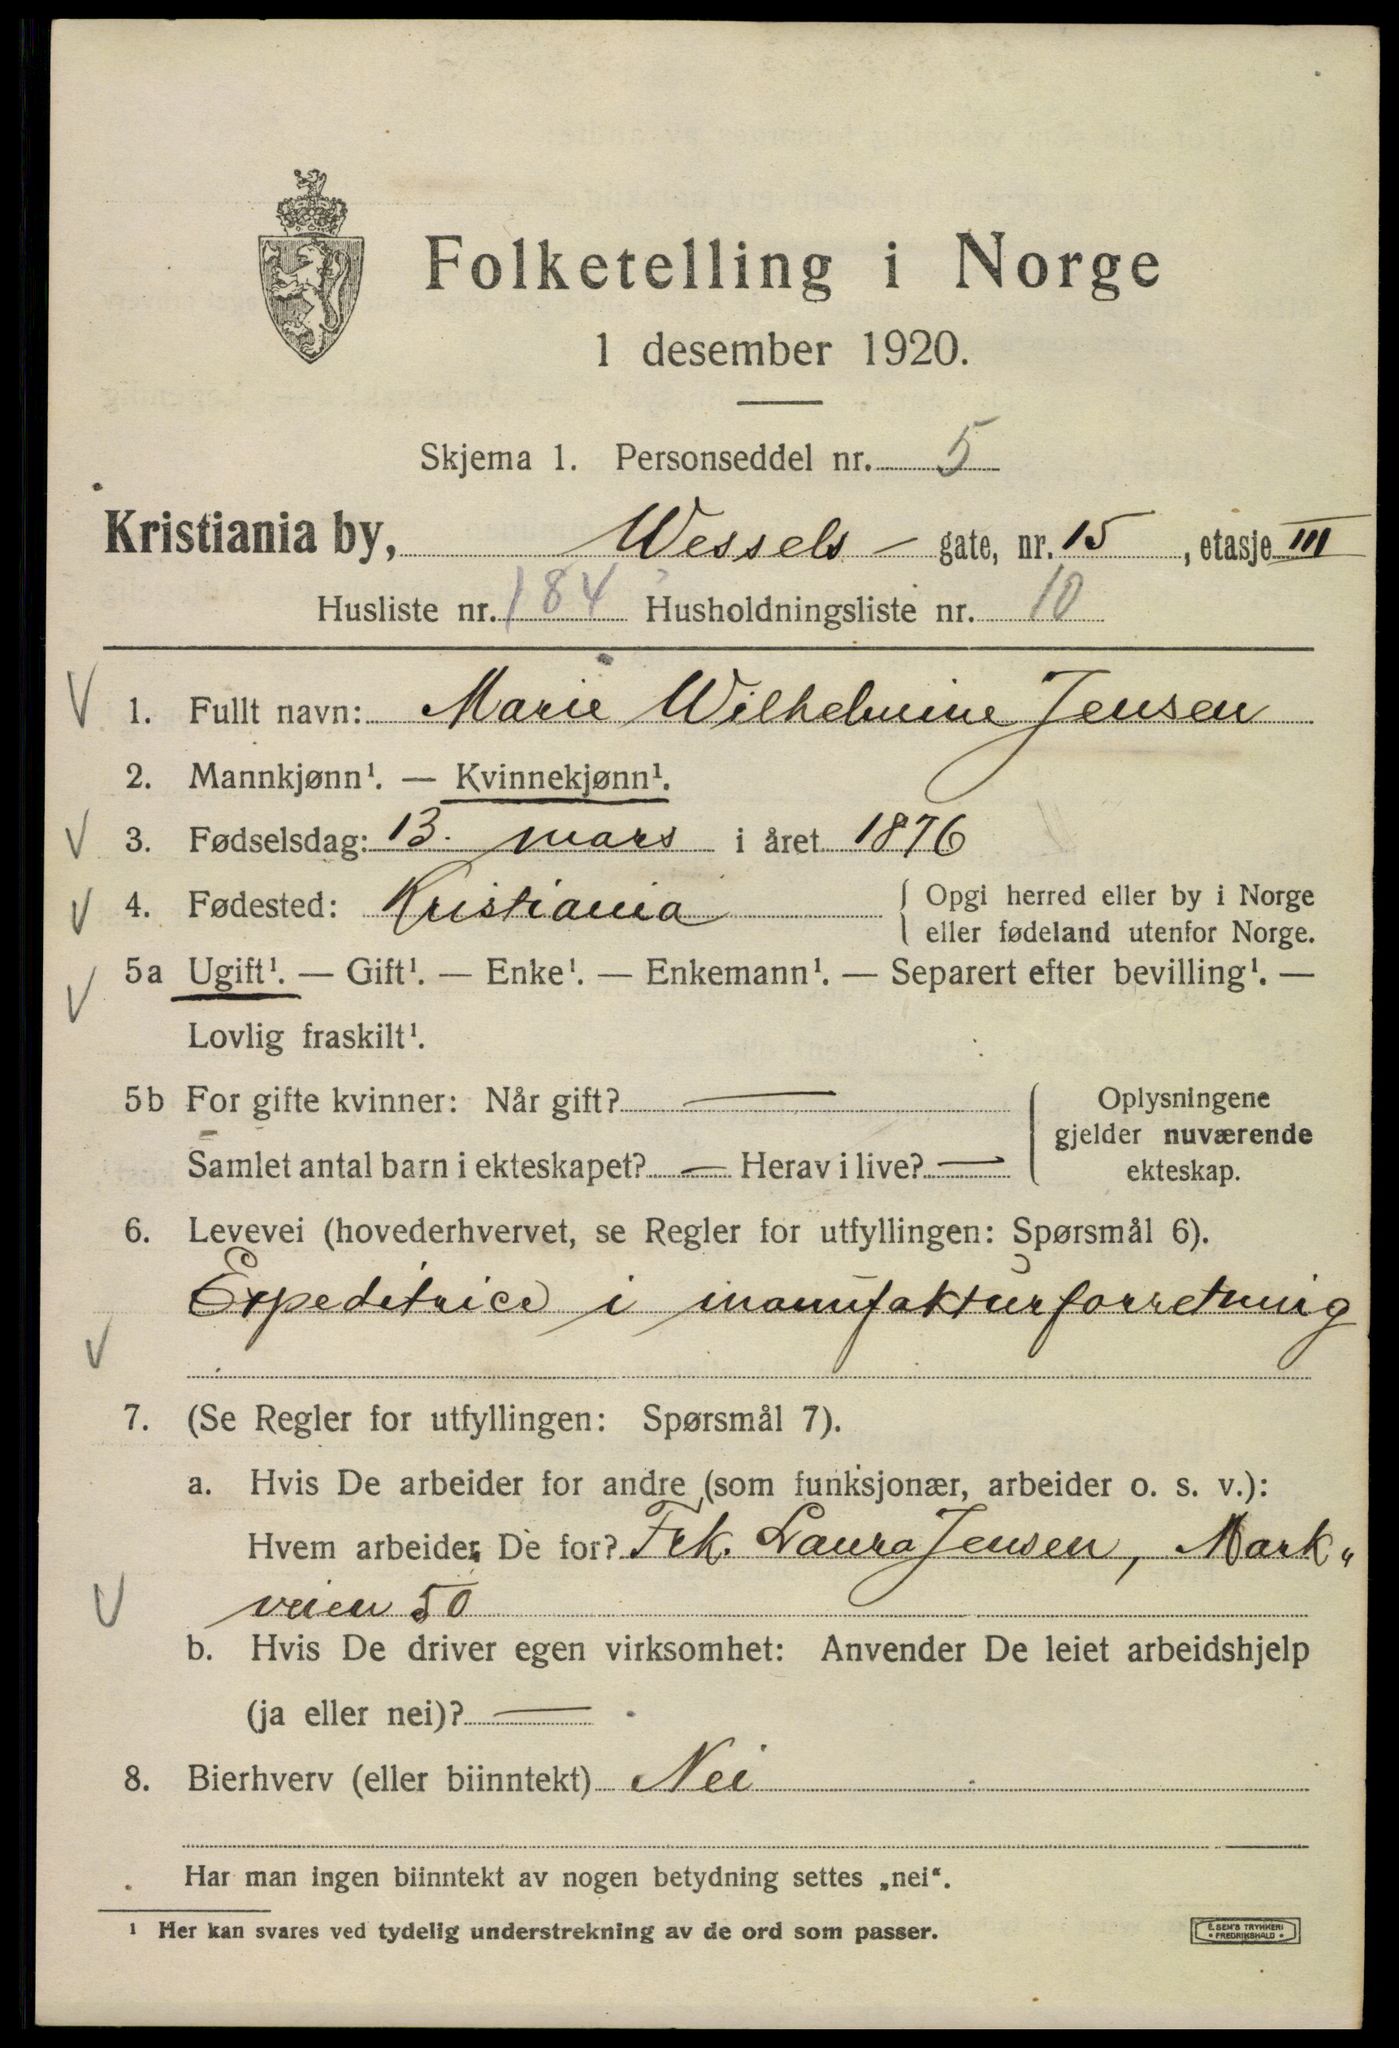 Folketelling i Norge
1 desember 1920.
Skjema 1. Personseddel nr. 5
Kristiania by, Wessels - gate, nr. 15, etasje III
Husliste nr. 184 Husholdningsliste nr. 10
1. Fullt navn: Marie Wilhelmine Jensen
2. Mannkjønn¹. — Kvinnekjønn¹.
3. Fødselsdag: 13. mars i året 1876
4. Fødested: Kristiania { Opgi herred eller by i Norge
eller fødeland utenfor Norge.
5a Ugift¹. — Gift¹. — Enke¹. — Enkemann¹. — Separert efter bevilling¹. —
Lovlig fraskilt¹.
5b For gifte kvinner: Når gift? — { Oplysningene
gjelder nuværende
Samlet antal barn i ekteskapet? — Herav i live? — ekteskap.
6. Levevei (hovederhvervet, se Regler for utfyllingen: Spørsmål 6).
Expeditrice i manufakturforretning
7. (Se Regler for utfyllingen: Spørsmål 7).
a. Hvis De arbeider for andre (som funksjonær, arbeider o. s. v.):
Hvem arbeider De for? Frk. Laura Jensen, Mark„
veien 50
b. Hvis De driver egen virksomhet: Anvender De leiet arbeidshjelp
(ja eller nei)? —
8. Bierhverv (eller biinntekt) Nei
Har man ingen biinntekt av nogen betydning settes „nei“.
¹ Her kan svares ved tydelig understrekning av de ord som passer.
E. SEM'S TRYKKERI
• FREDRIKSHALD •